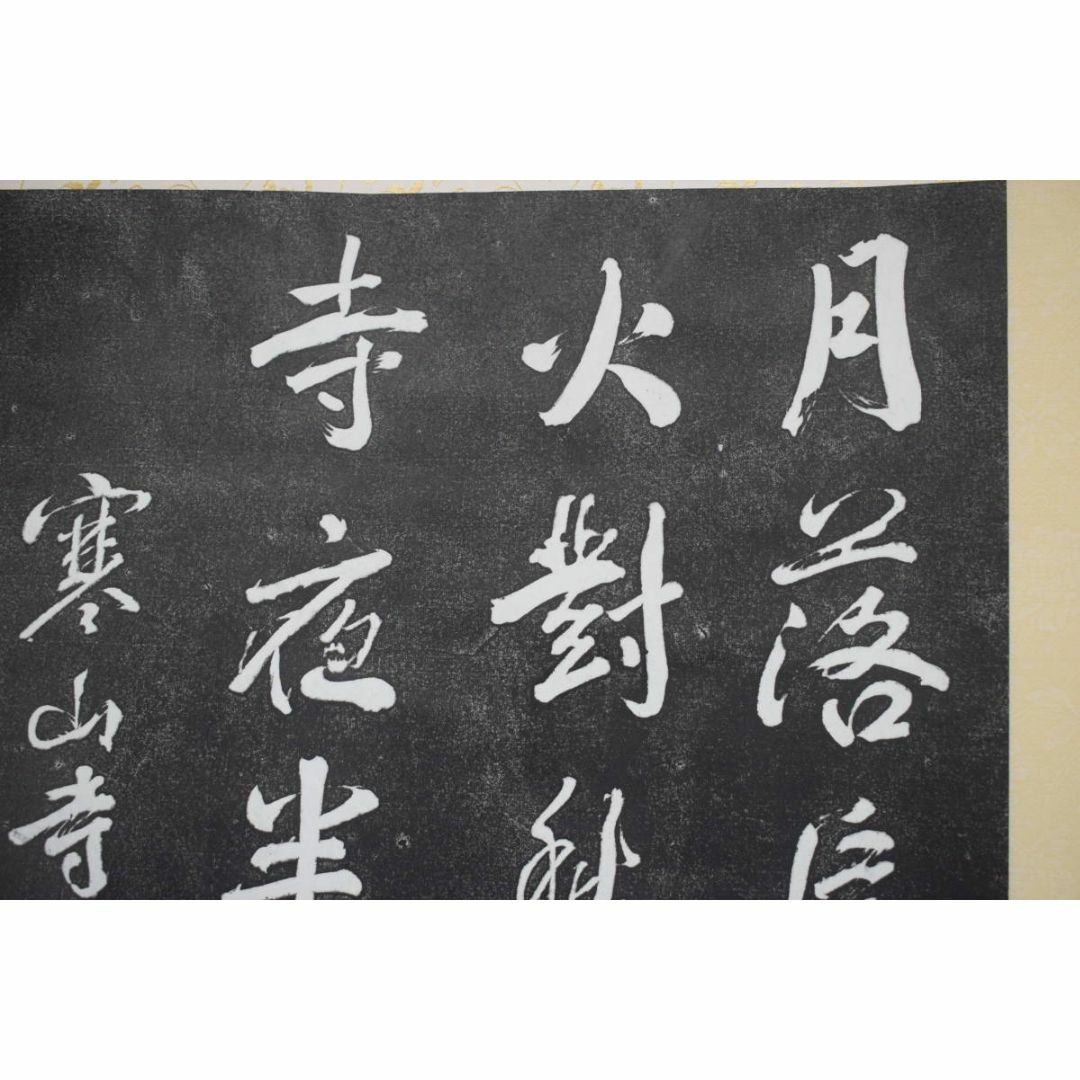 月落
火對
寺夜半
寒山寺